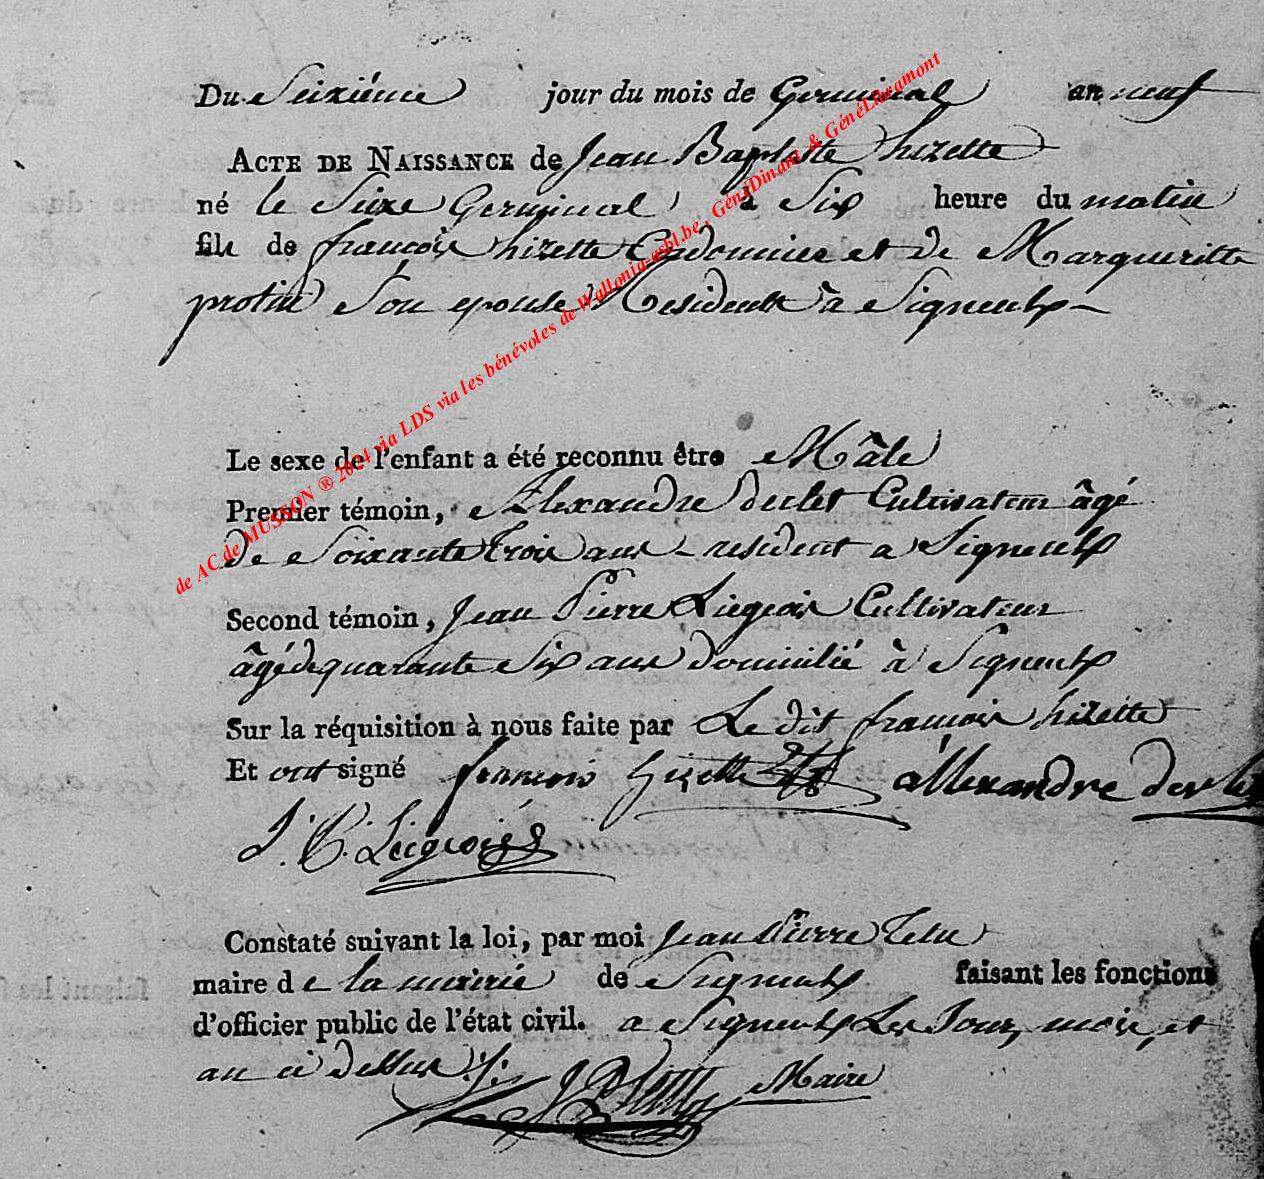 Du Seixiéme jour du mois de Germinal an neuf
ACTE DE NAISSANCE de Jean Baptiste hizette
né le Seixe Germinal à Six heure du matin
fils de françois hizette Cordonnier et de Margueritte
protin Son epouse Resident à Signeulx
Le sexe de l'enfant a été reconnu être Mâle
Premier témoin, Alexandre derlet Cultivateur âgé
de Soixante trois ans resident a Signeulx
Second témoin, Jean Pierre Liegeois Cultivateur
âgé de quarante Six ans domicilié à Signeulx
Sur la réquisition à nous faite par Le dit françois hizette
Et ont signé françois hizette allexandre
J. P. Liegeois
Constaté suivant la loi, par moi Jean Pierre
maire de la mairie de Signeulx faisant les fonctions
d'officier public de l'état civil. a Signeulx Les Jour, mois, et
an ci dessus
Maire
de AC de MUSSON ® 2024 via LDS via les bénévoles de Wallonia-asbl.be , GénéDinant & GénéLibramont